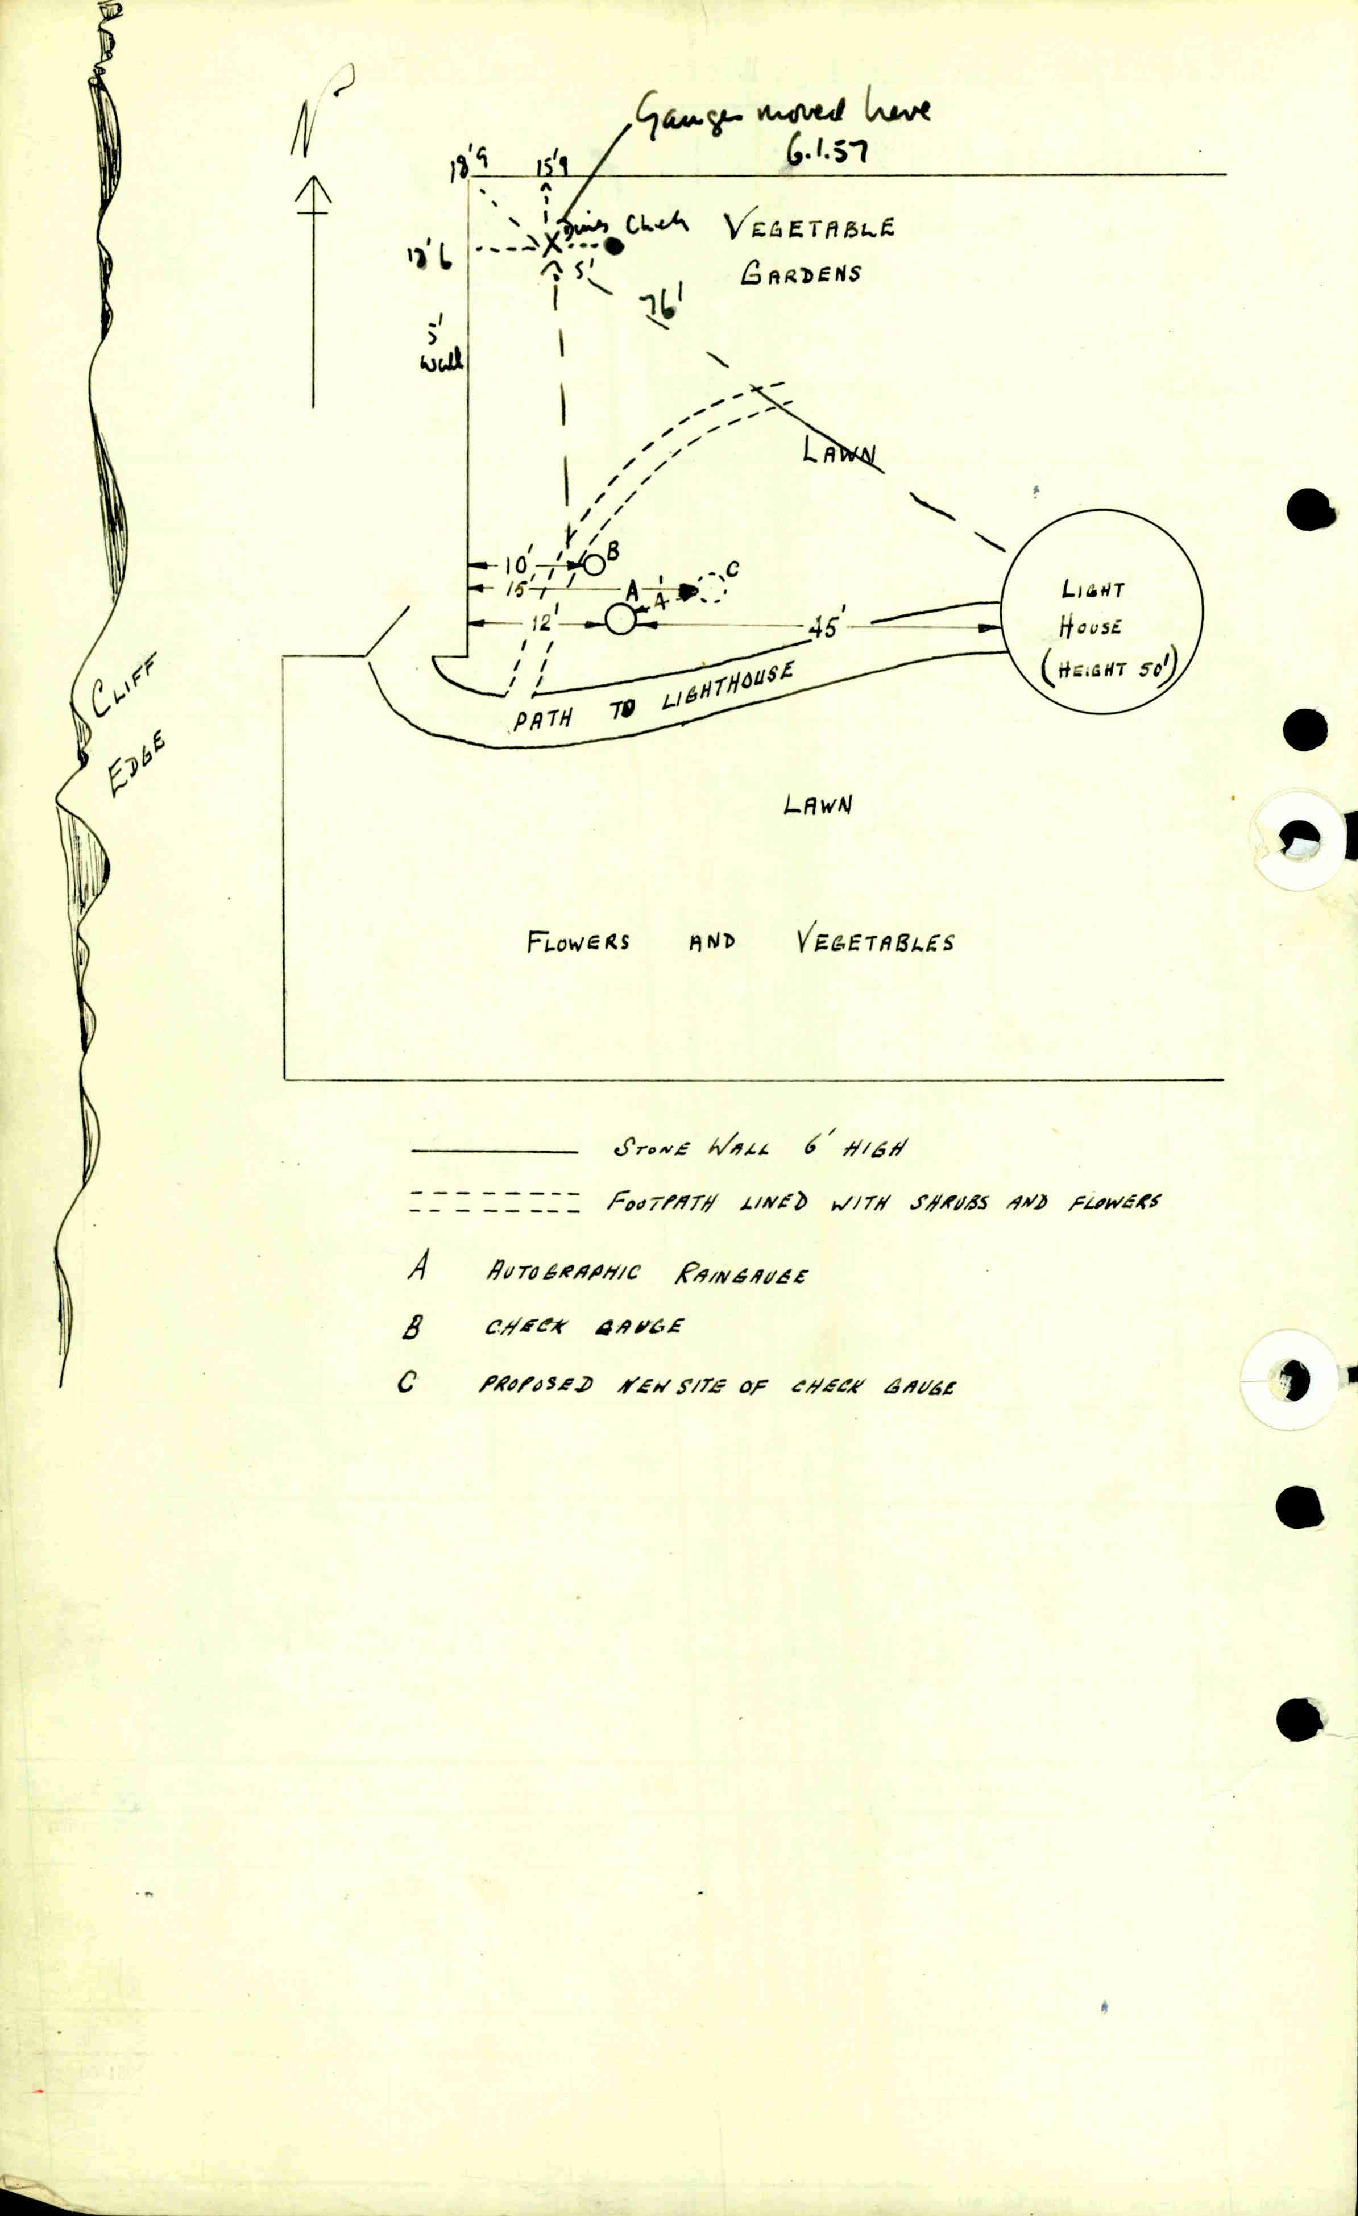 N
Gauges moved here
6.1.57
18'9
15'9
Dines
Check
VEGETABLE
GARDENS
5'
76'
5'
Wall
LAWN
10'
B
15'
A
4'
C
12'
45'
LIGHT
HOUSE
(HEIGHT 50')
CLIFF
EDGE
PATH TO LIGHTHOUSE
LAWN
FLOWERS AND VEGETABLES
STONE WALL 6' HIGH
FOOTPATH LINED WITH SHRUBS AND FLOWERS
A AUTOGRAPHIC RAINGAUGE
B CHECK GAUGE
C PROPOSED NEW SITE OF CHECK GAUGE